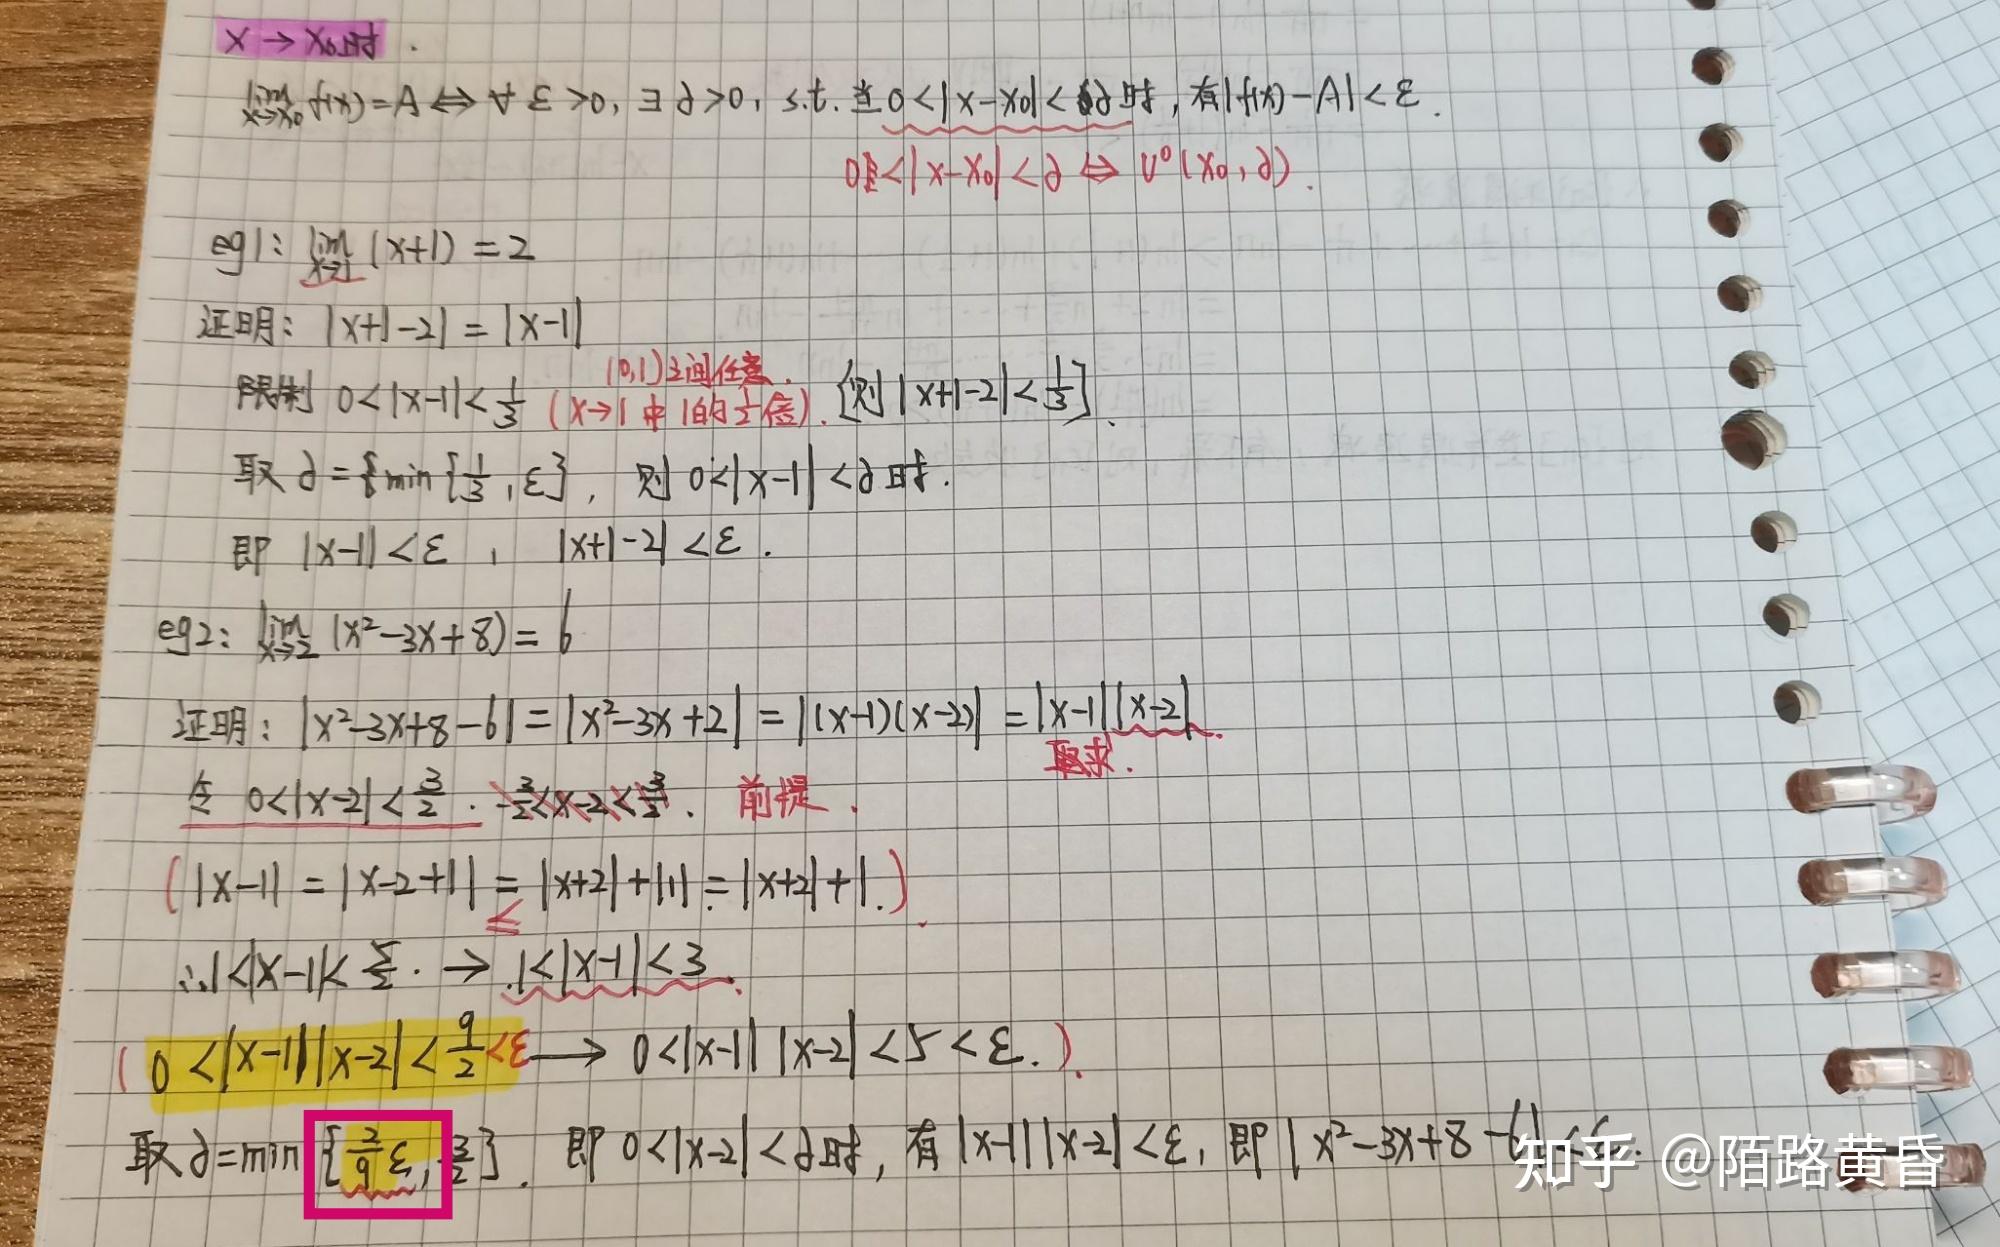 x → x₀时.
lim x→x₀ f(x) = A ⇔ ∀ ε >0, ∃ ∂>0, s.t. 当 0<|x-x₀|<∂时, 有|f(x)-A|<ε.
0<|x-x₀|<∂ ⇔ U⁰(x₀,∂).
eg1: lim x→1 (x+1) = 2
证明: |x+1-2| = |x-1|
(0,1)之间任意.
限制 0<|x-1|<1/3 (x→1 中 1的1/2倍). {则|x+1-2|<1/3}.
取 ∂={min{1/3,ε}, 则 0<|x-1|<∂时.
即 |x-1|<ε, |x+1-2|<ε.
eg2: lim x→2 (x²-3x+8) = 6
证明: |x²-3x+8-6| = |x²-3x+2| = |(x-1)(x-2)| = |x-1||x-2|.
要求.
令 0<|x-2|<3/2. -3/2<x-2<3/2. 前提.
(|x-1| = |x-2+1| = |x+2|+|1| = |x+2|+1.)
≤
∴1<|x-1|<5/2. → 1<|x-1|<3.
(0<|x-1||x-2|<9/2<ε → 0<|x-1||x-2|<5<ε.)
取∂=min{2/9 ε, 3/2}. 即 0<|x-2|<∂时, 有|x-1||x-2|<ε, 即|x²-3x+8-6|<ε.
知乎 @陌路黄昏